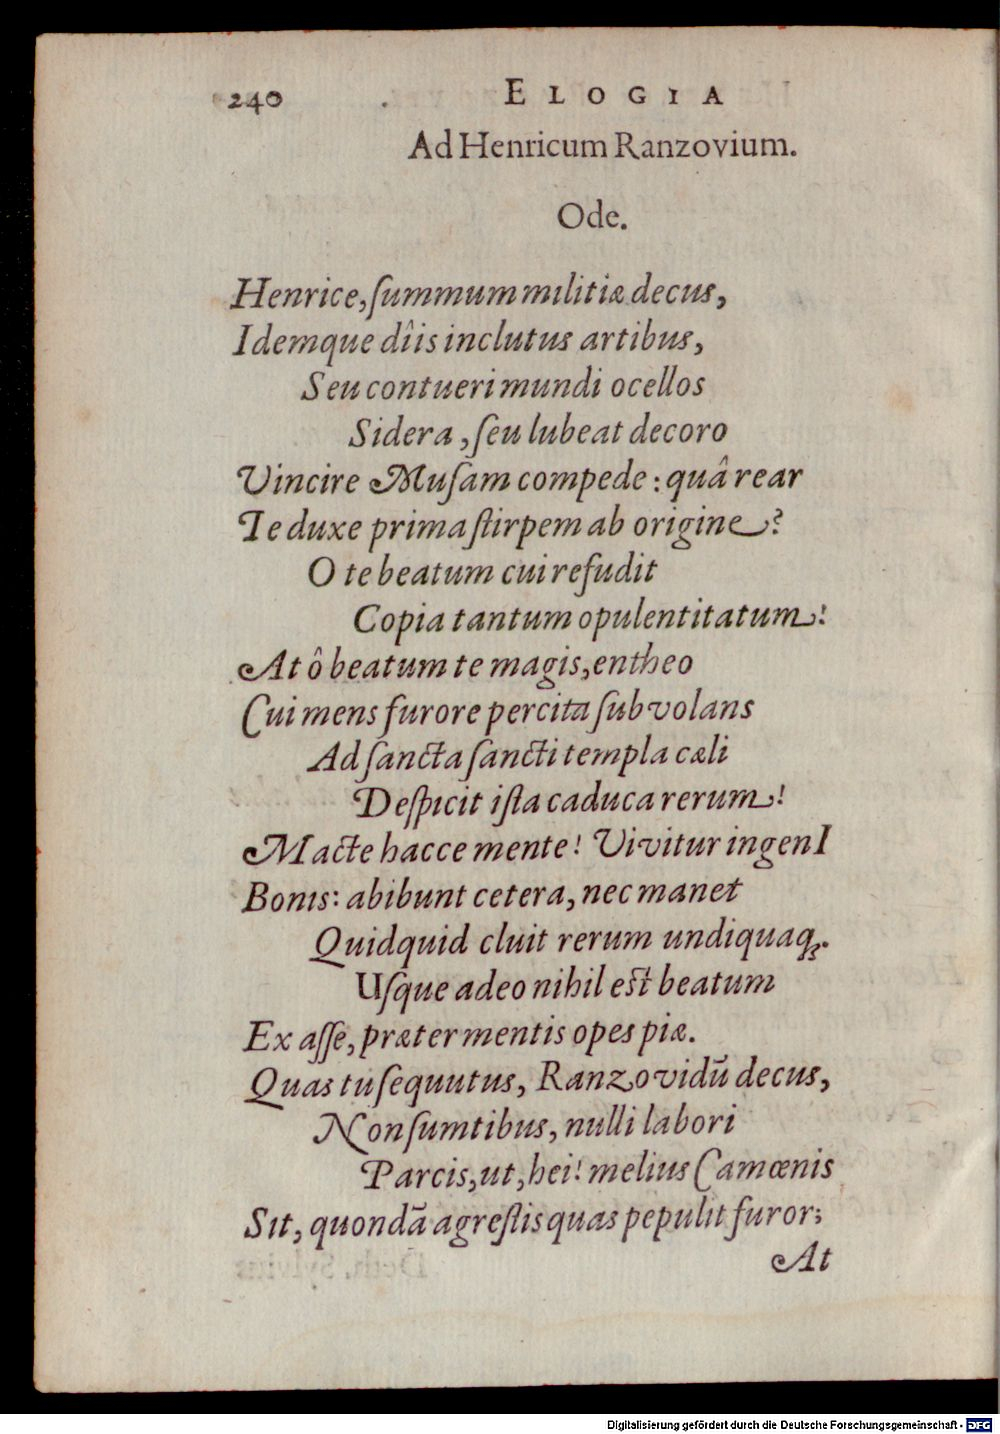 240 ELOGIA
Ad Henricum Ranzovium.
Ode.
Henrice, ſummum militiæ decus,
Idemque dîis inclutus artibus,
Seu contueri mundi ocellos
Sidera, ſeu lubeat decoro
Vincire Muſam compede: quâ rear
Te duxe prima ſtirpem ab origine?
O te beatum cui refudit
Copia tantum opulentitatum!
At ô beatum te magis, entheo
Cui mens furore percita ſubvolans
Ad ſancta ſancti templa cæli
Deſpicit iſta caduca rerum!
Macte hacce mente! Vivitur ingenI
Bonis: abibunt cetera, nec manet
Quidquid cluit rerum undiquaq;.
Uſque adeo nihil eſt beatum
Ex aſſe, præter mentis opes piæ.
Quas tu ſequutus, Ranzovidū decus,
Non ſumtibus, nulli labori
Parcis, ut, hei! melius Camœnis
Sit, quondā agreſtis quas pepulit furor;
At
Digitalisierung gefördert durch die Deutsche Forschungsgemeinschaft - DFG